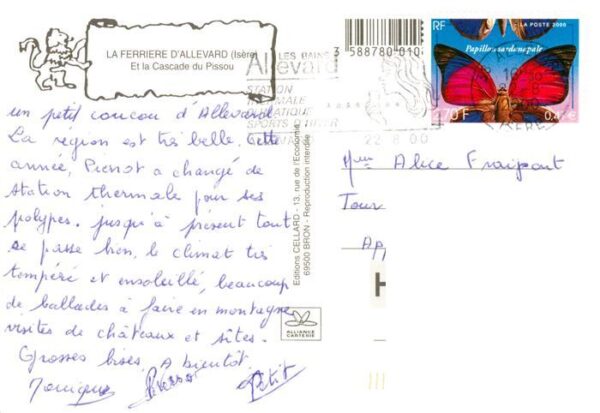 LA FERRIERE D'ALLEVARD (Isère)
Et la Cascade du Pissou
un petit coucou d'Allevard
La région est très belle. Cette
année, Pierrot a changé de
station thermale pour ses
polypes. jusqu'à présent tout
se passe bien, le climat très
tempéré et ensoleillé, beaucoup
de ballades à faire en montagne
visites de châteaux et sites.
Grosses bises. A bientôt
Monique Pierrot Petit
Editions CELLARD - 13, rue de l'Economie
69500 BRON - Reproduction interdite
ALLIANCE
CARTERIE
3 588780 010
LES BAINS
Allevard
STATION
SPORTS D'HIVER
22 8 00
RF
LA POSTE 2000
Papillon sardanapale
2,70 F
0,41 €
Mme Alice Fraipont
Tour
AP
H